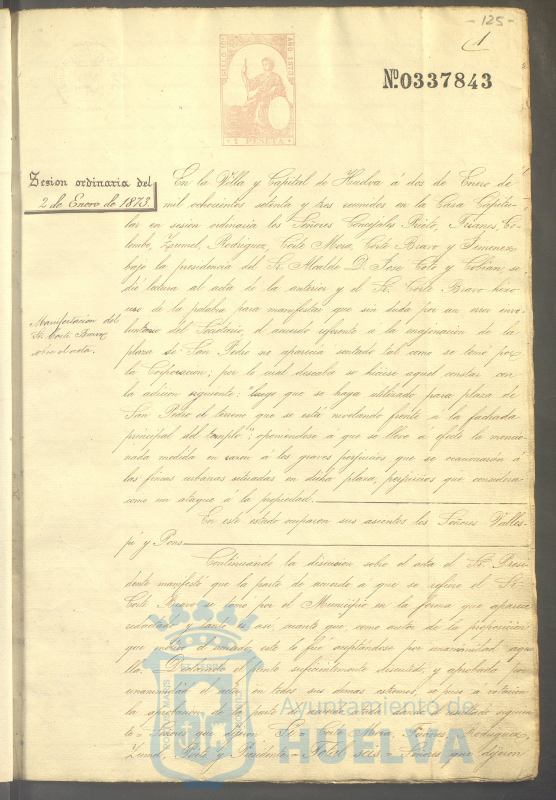 - 125 -
1
SELLO 10º AÑO 1873
1 PESETA
Nº 0337843
Sesion ordinaria del
2 de Enero de 1873
En la Villa y Capital de Huelva á dos de Enero de
mil ochocientos setenta y tres reunidos en la Casa Capitu-
lar en sesion ordinaria los Señores Concejales Prieto, Co-
lombo, Zrumel, Rodriguez, Corte Mora, Corte Bravo y Jimenez
bajo la presidencia del Sr. Alcalde D. Jose Coto y Cobian, se
dio lectura al acta de la anterior y el Sr. Corte Bravo hizo
Manifestacion del
Sr. Corte Bravo
sobre el acta.
uso de la palabra para manifestar que sin duda por un error invo-
luntario del Secretario, el acuerdo referente á la esplanacion de la
plaza de San Pedro no aparecia sentado tal como se tomó por
la Corporacion; por lo cual deseaba se hiciese aquel constar con
la adicion siguiente: "luego que se haya utilizado para plaza de
San Pedro el terreno que se está nivelando frente á la fachada
principal del templo"; oponiendose á que se lleve á efecto la mencio-
nada medida en razon á los graves perjuicios que se ocasionarian á
las fincas urbanas situadas en dicha plaza, perjuicios que considera
como un ataque á la propiedad.
En este estado ocuparon sus asientos los Señores Valles-
pi y Pons
Continuando la discusion sobre el acta el Sr. Presi-
dente manifestó que la parte de acuerdo á que se refiere el Sr.
Corte Bravo se tomó por el Municipio en la forma que aparece
redactado y tanto es asi, cuanto que como autor de la proposicion
que motivó el acuerdo este lo fué aceptandose por unanimidad aque-
lla. Declarado el punto suficientemente discutido, y aprobada por
unanimidad el acta en todos sus demas estremos, se puso á votacion
la aprobacion de la parte de acuerdo dando el resultado siguien-
te = Señores que dijeron Si = Corte Mora, Rodriguez,
Zrumel, Pons y Presidente = Total seis = Señores que dijeron
Ayuntamiento de
HUELVA